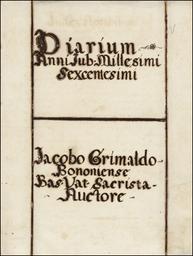 Diarium
Anni Iub. Millesimi
Sexcentesimi
Jacobo Grimaldo
Bononiense
Bas. Vat. Sacrista
Auctore